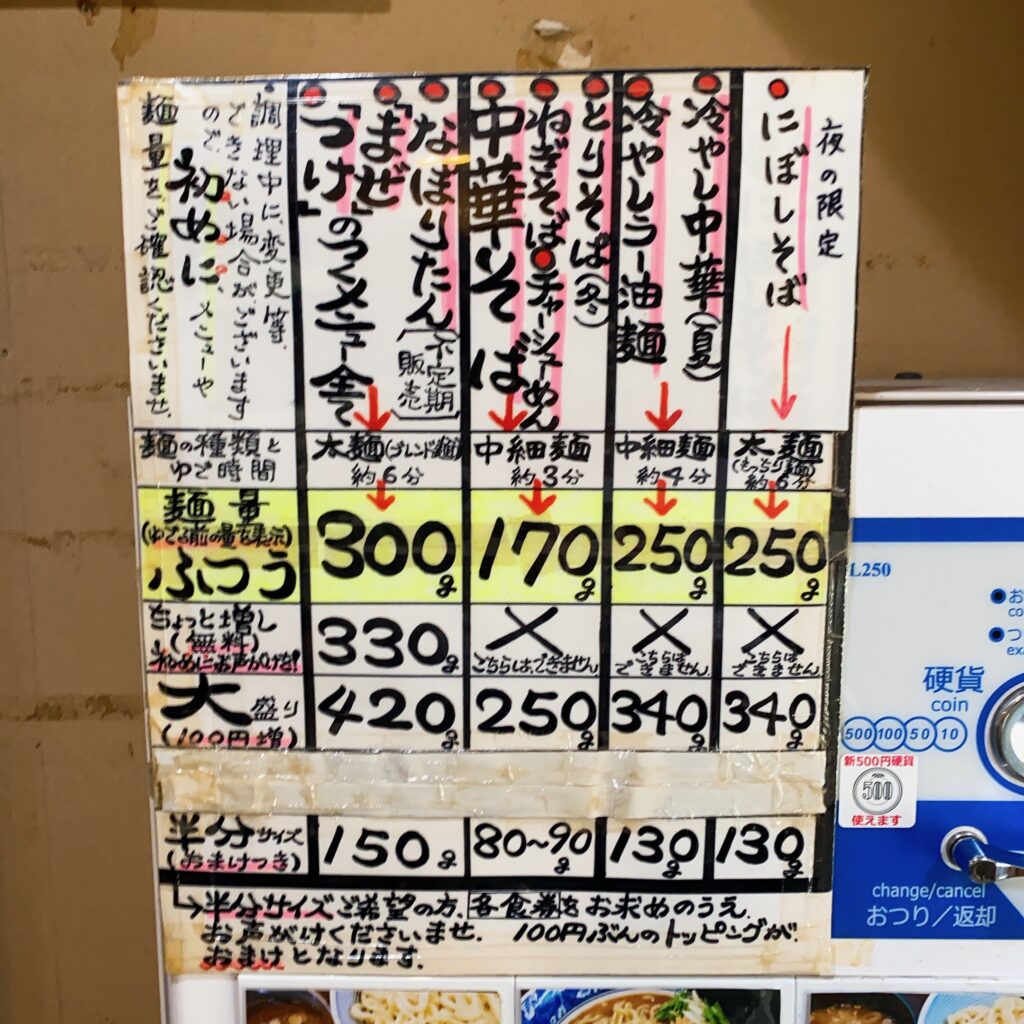 夜の限定
にぼしそば
冷やし中華(夏)
冷やしラー油麺
とりそば(冬)
ねぎそば
チャーシューめん
中華そば
なぽりたん
(不定期
販売)
「まぜ
「つけ」のつくメニュー全て
調理中に、変更等、
できない場合がございます
ので、初めに、メニューや
麺量をご確認くださいませ.
麺の種類と
ゆで時間
太麺(ブレンド麺)
約6分
中細麺
約3分
中細麺
約4分
太麺
(もっちり麺)
約6分
麺量
(ゆでる前の量を表示)
ふつう
300g
170g
250g
250g
ちょっと増し
(無料)
初めにお声がけを!
330g
×
こちらはできません
×
こちらは
できません
×
こちらは
できません
大盛り
(100円増)
420g
250g
340g
340g
半分サイズ
(おまけつき)
150g
80~90g
130g
130g
半分サイズご希望の方、各食券をお求めのうえ、
お声がけくださいませ. 100円ぶんのトッピングが
おまけとなります.
L250
お
co
つ
exa
硬貨
coin
500 100 50 10
新500円硬貨
500
使えます
change/cancel
おつり/返却